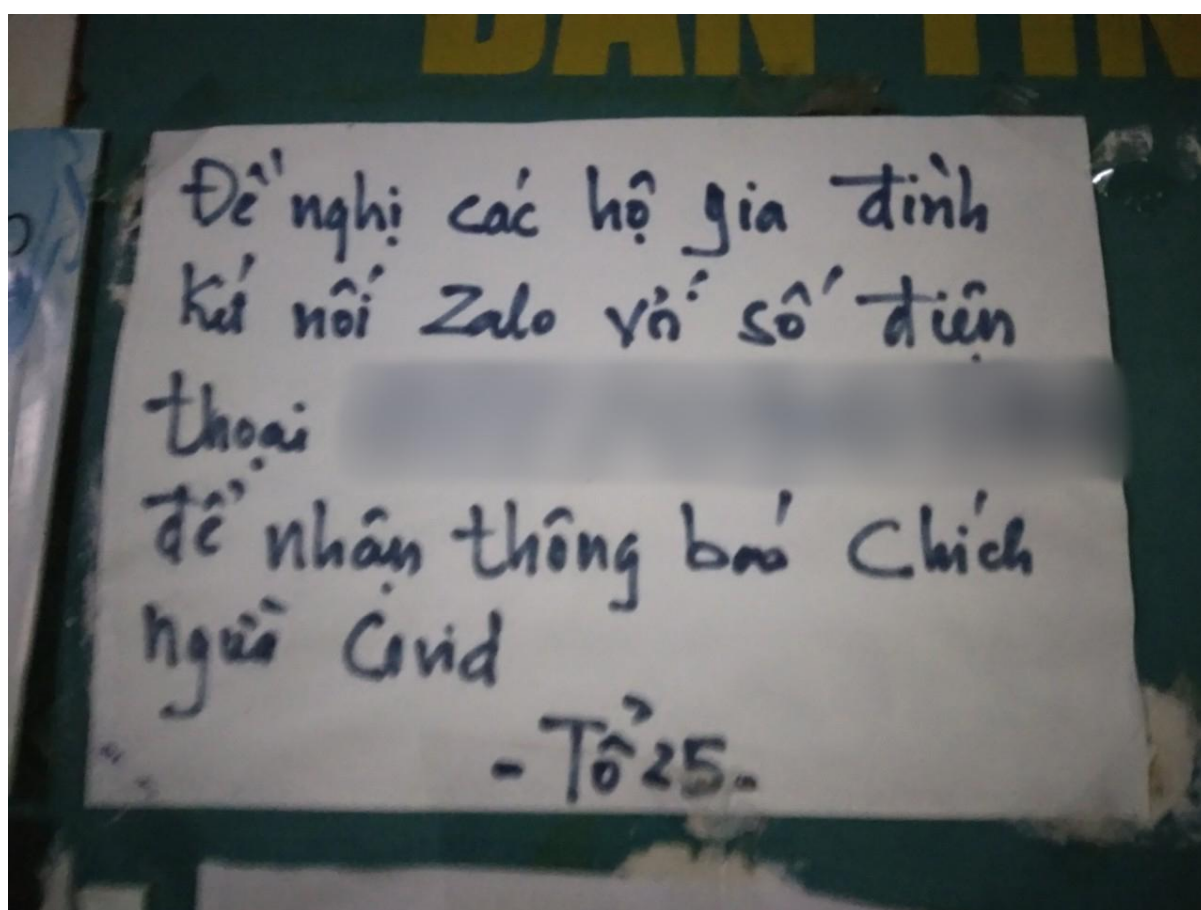 BẢN TIN
Đề nghị các hộ gia đình
Kết nối Zalo với số điện
thoại
để nhận thông báo Chích
ngừa Covid
- Tổ 25-